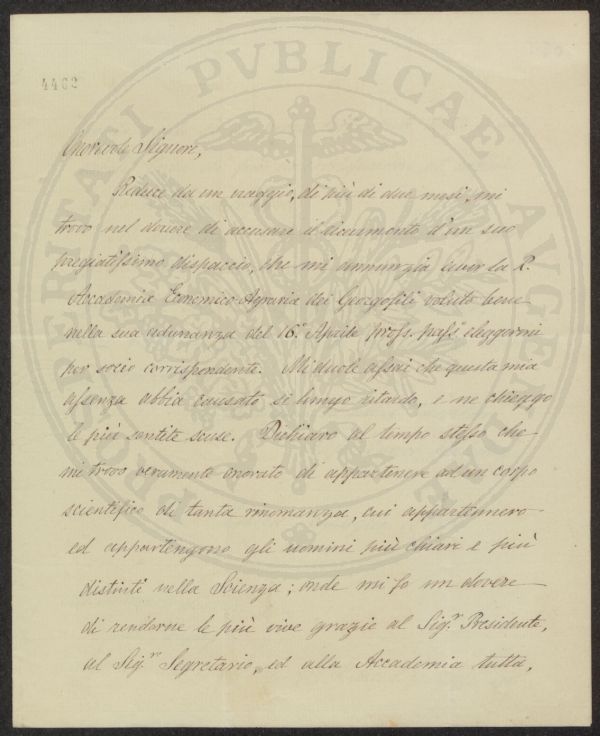 PROSPERITATI PVBLICAE AVGENDAE
4462
Onorevole Signore,
Reduce da un viaggio, di più di due mesi, mi
trovo nel dovere di accusare il ricevimento d'un suo
pregiatissimo dispaccio, che mi annunzia aver la R.
Accademia Economico-Agraria dei Georgofili voluto bene
nella sua adunanza del 16. Aprile pross. pass. eleggermi
per socio corrispondente. Mi duole assai che questa mia
assenza abbia causato sì lungo ritardo, e ne chieggo
le più sentite scuse. Dichiaro al tempo stesso che
mi trovo veramente onorato di appartenere ad un corpo
scientifico di tanta rinomanza, cui appartennero
ed appartengono gli uomini più chiari e più
distinti nella Scienza; onde mi fo un dovere
di renderne le più vive grazie al Sig.r Presidente,
al Sig.r Segretario, ed alla Accademia tutta,